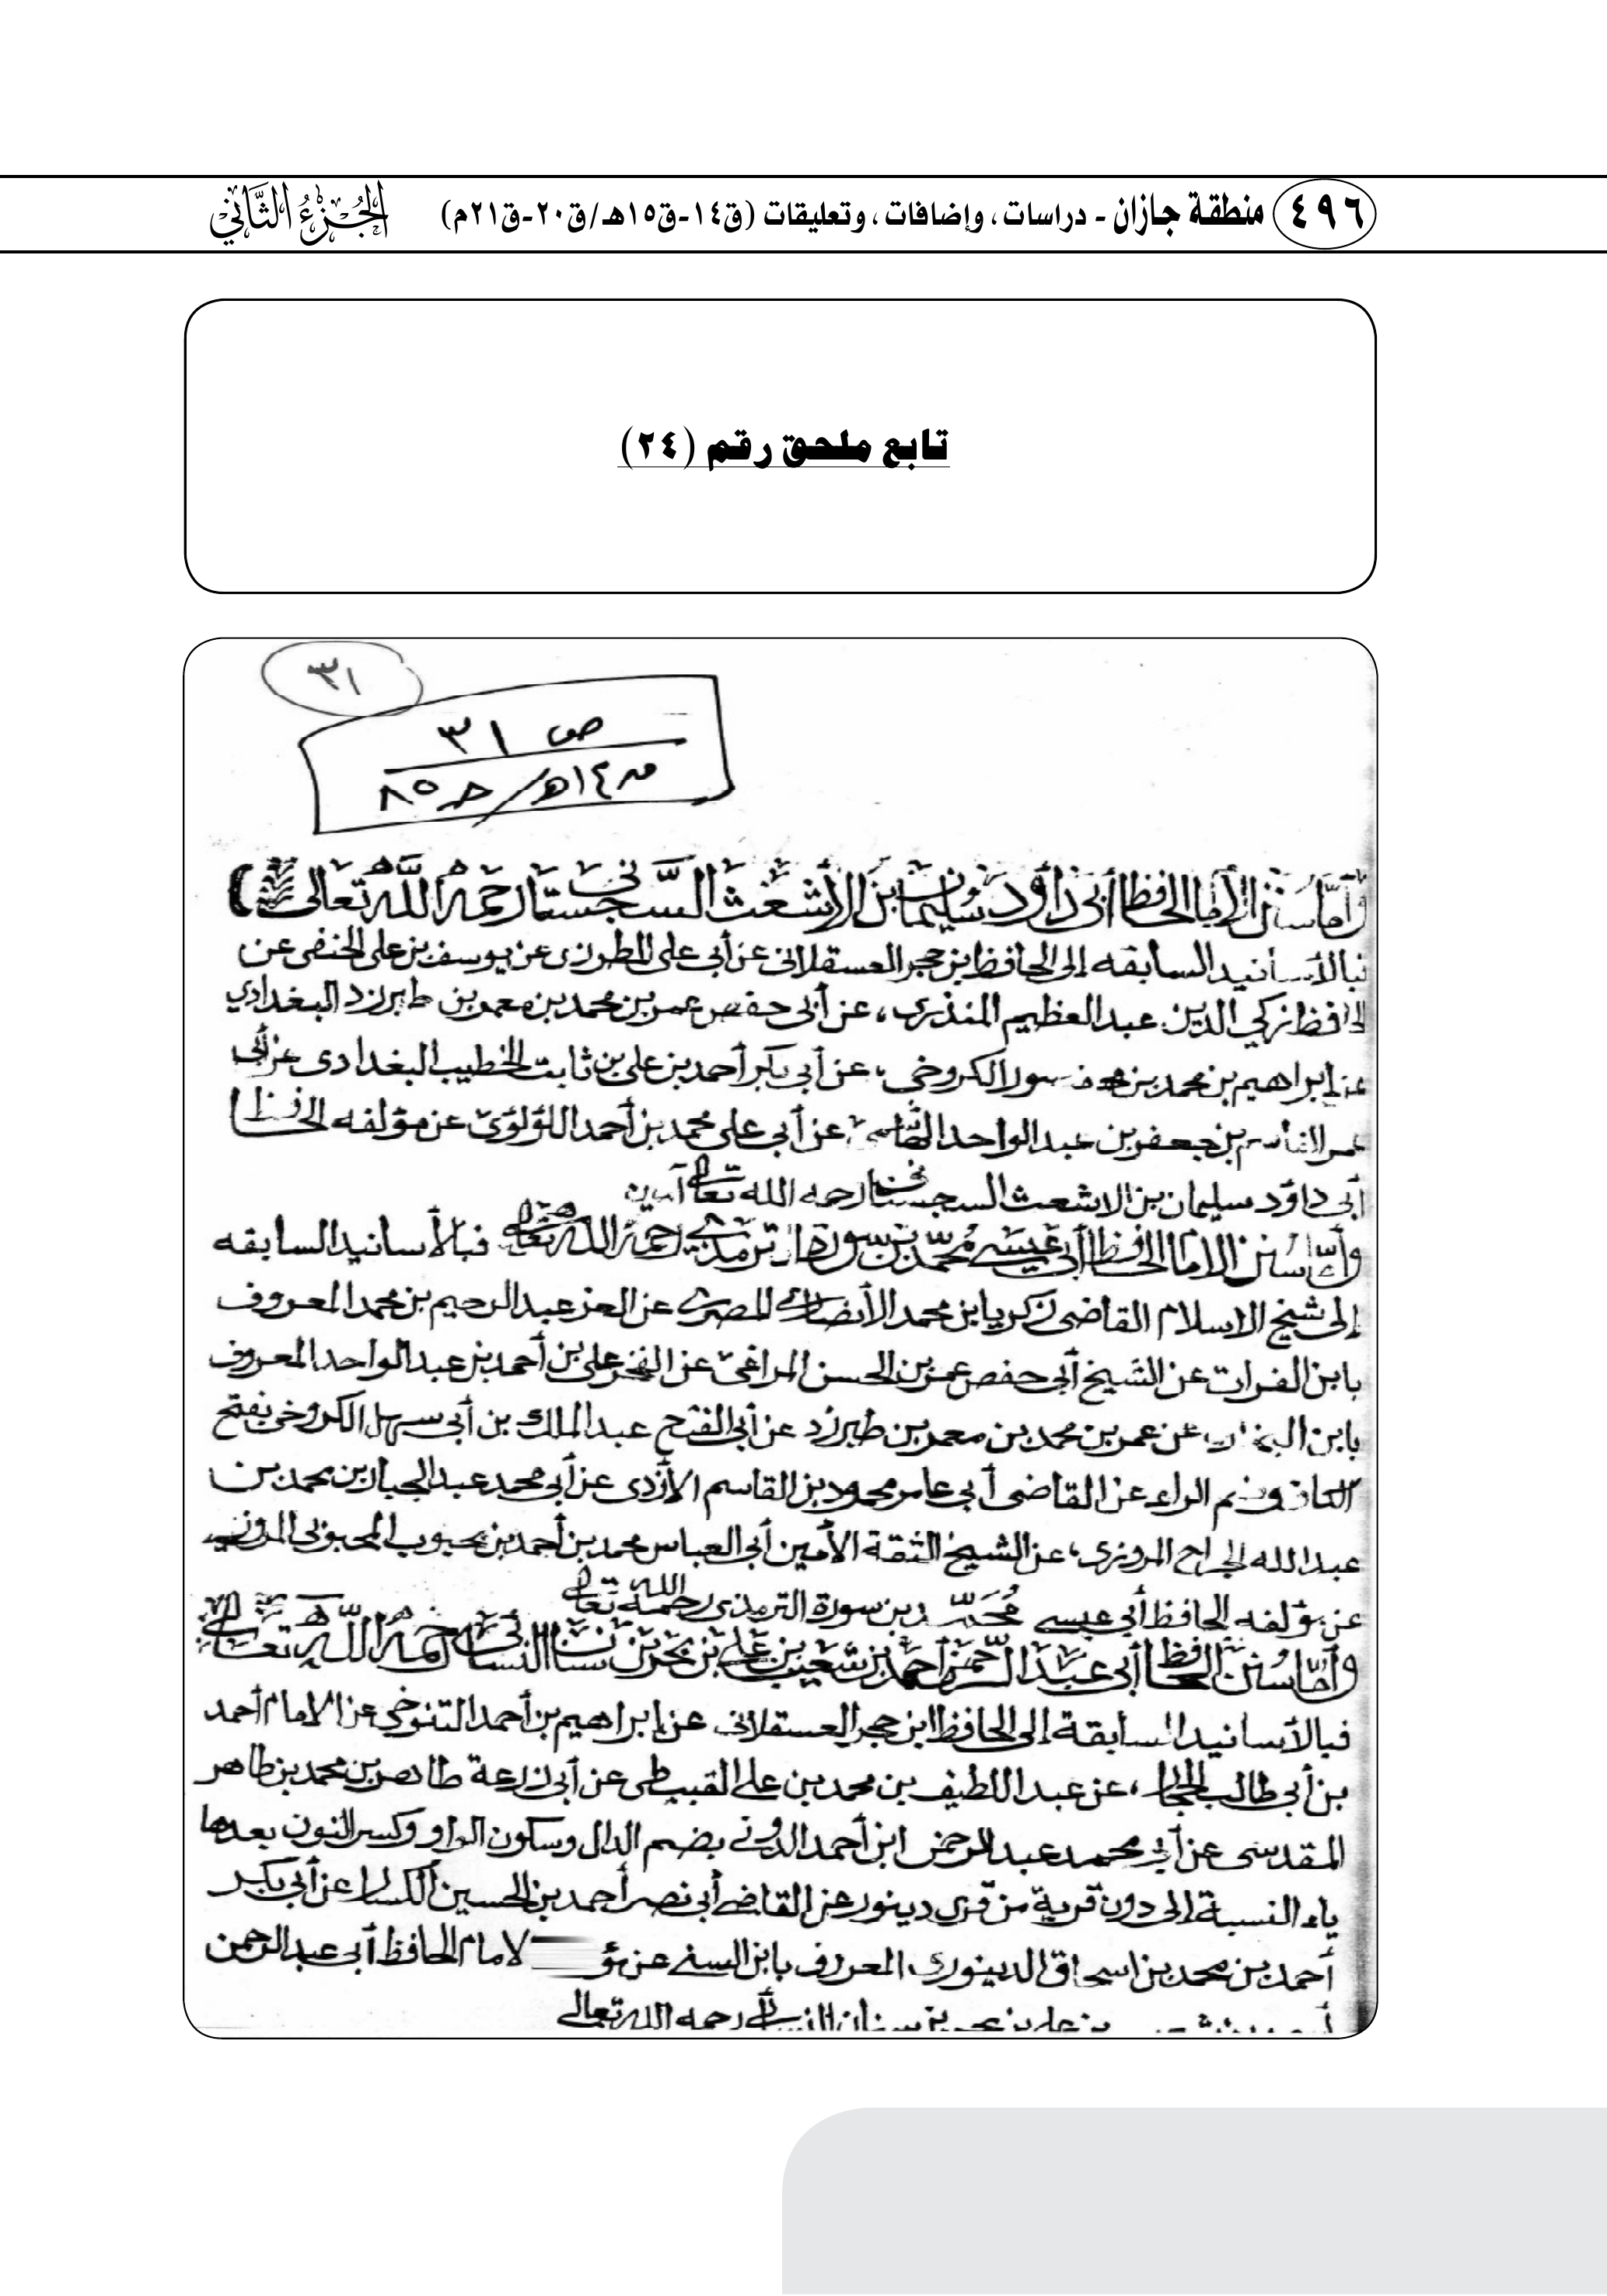 ٤٩٦ منطقة جازان - دراسات، وإضافات، وتعليقات (ق١٤-ق١٥هـ/ق٢٠-ق٢١م) الجُزءُ الثَّاني
تابع ملحق رقم (٢٤)
٣١
ص ٣١
وأما سنن الإمام الحافظ أبي داود سليمان بن الأشعث السجستاني رحمه الله تعالى
فبالأسانيد السابقه إلى الحافظ بن حجر العسقلاني عن أبي على المطرزى عن يوسف بن على الحنفى عن
الحافظ زكي الدين عبد العظيم المنذرى، عن أبى حفص عمر بن محمد بن معمر بن طبرزد البغدادي
عن إبراهيم بن محمد بن منصور الكروخي، عن أبي بكر أحمد بن على بن ثابت الخطيب البغدادى عن أبى
عمر القاسم بن جعفر بن عبد الواحد الهاشمى عن أبي على محمد بن أحمد اللؤلؤى عن مؤلفه الحافظ
أبى داؤد سليمان بن الاشعث السجستانى رحمه الله تعالى آمين
وأما سنن الامام الحافظ أبي عيسى محمد بن سورة الترمذي رحمه الله تعالى فبالأسانيد السابقه
إلى شيخ الاسلام القاضى زكريا بن محمد الأنصارى المصرى عن العز عبد الرحيم بن محمد المعروف
بابن الفرات عن الشيخ أبى حفص عمر بن الحسن المراغى عن الفخر على بن أحمد بن عبد الواحد المعروف
بابن البخارى عن عمر بن محمد بن معمر بن طبرزد عن أبى الفتح عبد الملك بن أبى سهل الكروخى بفتح
الكاف وضم الراء عن القاضى أبي عامر محمود بن القاسم الأزدى عن أبى محمد عبد الجبار بن محمد بن
عبد الله الجراح المروزى، عن الشيخ الثقة الأمين أبى العباس محمد بن أحمد بن محبوب المحبوبى المروزى
عن مؤلفه الحافظ أبى عيسى محمد بن سورة الترمذى رحمه الله تعالى
وأما سنن الحافظ أبى عبد الرحمن أحمد بن شعيب بن على بن بحر بن سنان النسائى رحمه الله تعالى
فبالأسانيد السابقة إلى الحافظ ابن حجر العسقلانى عن إبراهيم بن أحمد التنوخى عن الامام أحمد
بن أبى طالب الحجار، عن عبد اللطيف بن محمد بن على القبيطى عن أبى زرعة طاهر بن محمد بن طاهر
المقدسى عن أبى محمد عبد الرحمن ابن أحمد الدونى بضم الدال وسكون الواو وكسر النون بعدها
ياء النسبة إلى دون قرية من قرى دينور عن القاضى أبى نصر أحمد بن الحسين الكسار عن أبى بكر
أحمد بن محمد بن اسحاق الدينورى المعروف بابن السنى عن الامام الحافظ أبى عبد الرحمن
بن على بن بحر بن سنان النسائى رحمه الله تعالى